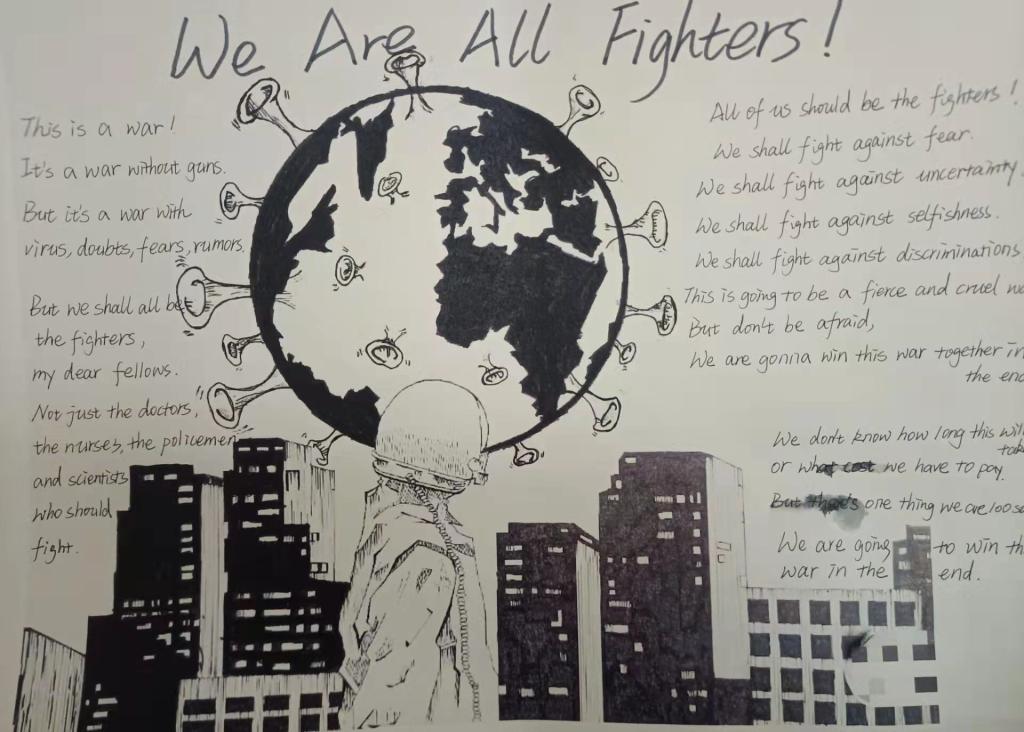 We Are All Fighters!
This is a war!
It's a war without guns.
But it's a war with
virus, doubts, fears, rumors.
But we shall all be
the fighters,
my dear fellows.
Not just the doctors,
the nurses, the policemen
and scientists
who should
fight.
All of us should be the fighters!
We shall fight against fear.
We shall fight against uncertainty.
We shall fight against selfishness.
We shall fight against discriminations
This is going to be a fierce and cruel
But don't be afraid,
We are gonna win this war together in
the end
We don't know how long this will
take
or what cost we have to pay.
But there's one thing we are 100
We are going to win the
war in the end.